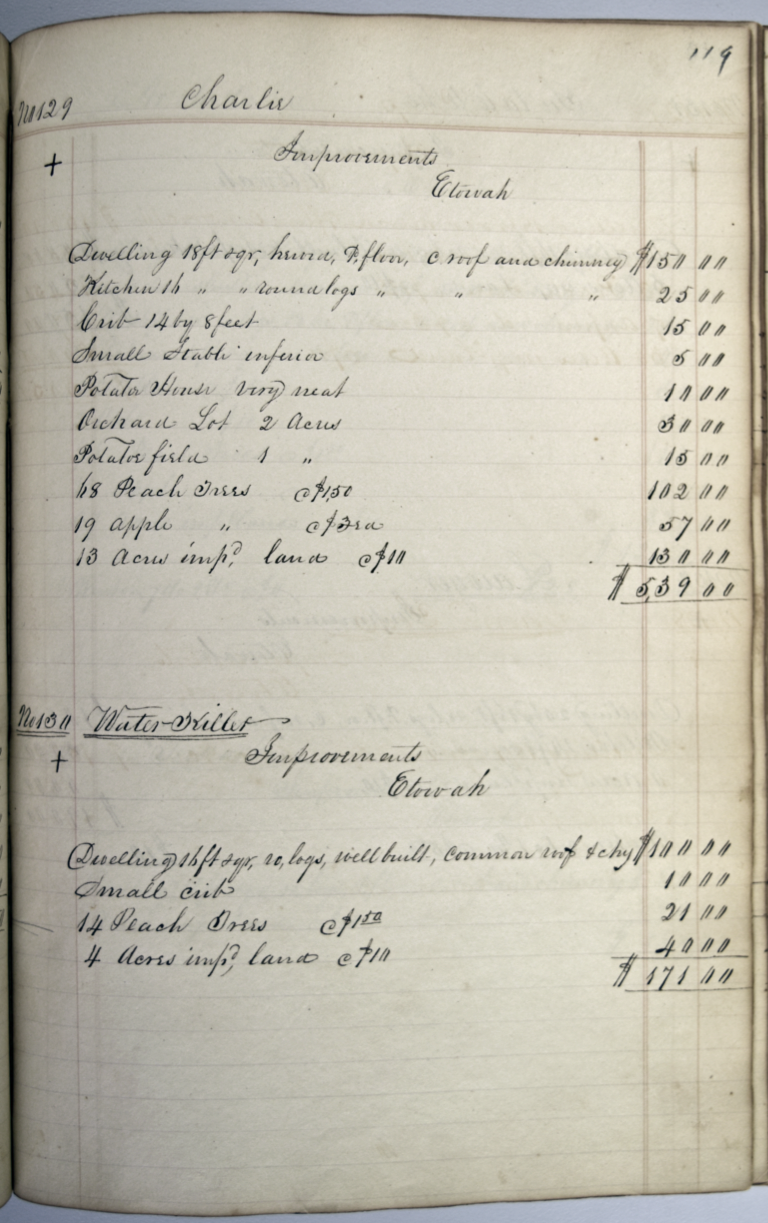 119
No 129 Charlie
+ Improvements
Etowah
Dwelling 18 ft sqr, hewed, P. floor, c roof and chimney $150 00
Kitchen 16 " " round logs " " " 25 00
Crib 14 by 8 feet 15 00
Small Stable inferior 5 00
Potatoe House very neat 10 00
Orchard Lot 2 Acres 30 00
Potatoe field 1 " 15 00
68 Peach Trees @ $1,50 102 00
19 apple " @ $3 ea 57 00
13 Acres impd, land @ $10 130 00
$ 539 00
No 130 Water Killer
+ Improvements
Etowah
Dwelling 16 ft sqr, ro, logs, well built, common roof & chy $100 00
Small crib 10 00
14 Peach Trees @ $1 50 21 00
4 Acres impd, land @ $10 40 00
$ 171 00